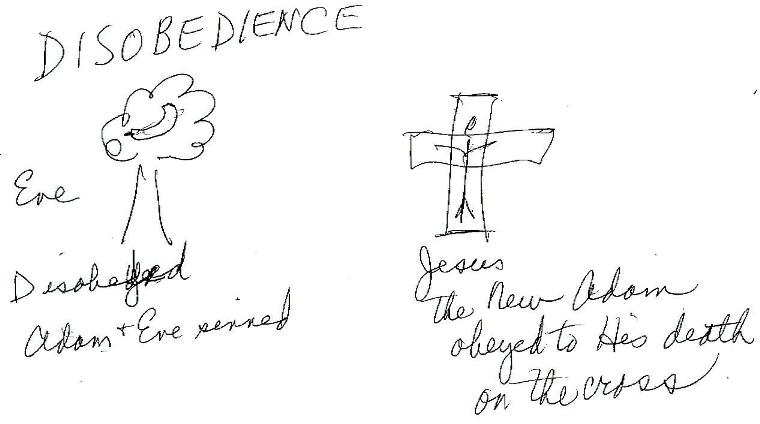 DISOBEDIENCE
Eve
Disobeyed
Adam + Eve sinned
Jesus
the New Adam
obeyed to His death
on the cross